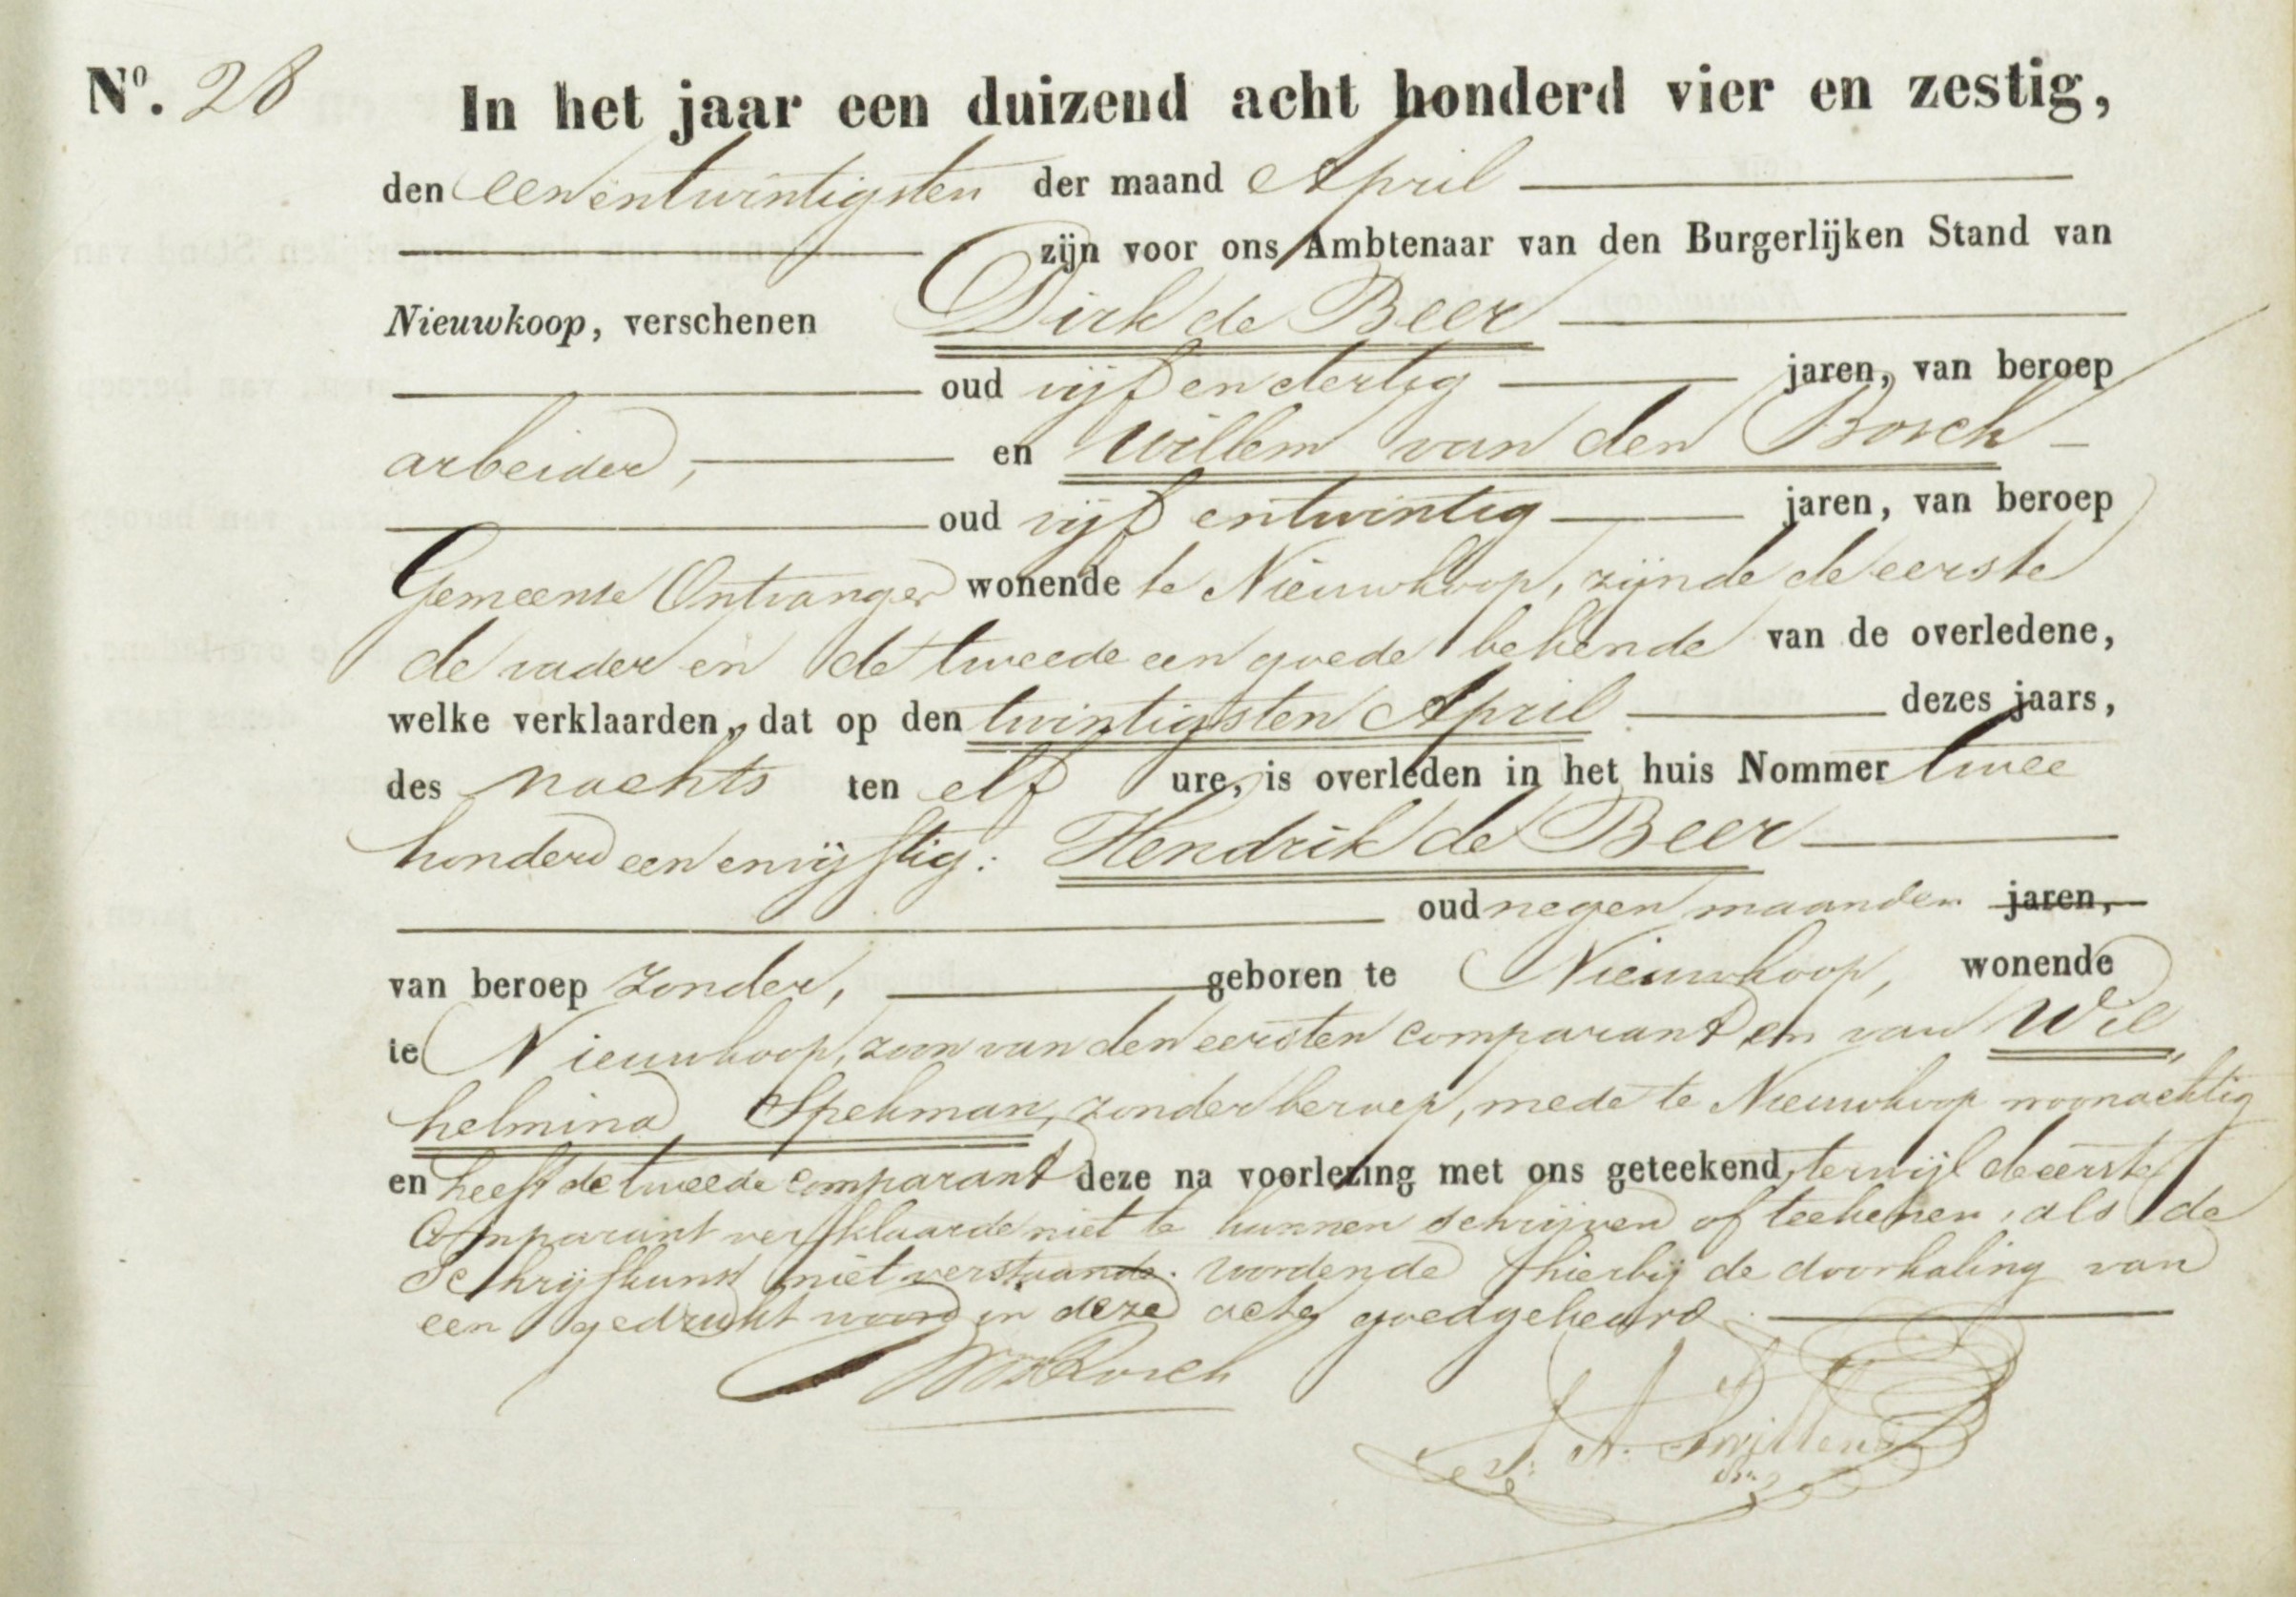 Nº. 28
In het jaar een duizend acht honderd vier en zestig,
den eenentwintigsten der maand April
zijn voor ons Ambtenaar van den Burgerlijken Stand van
Nieuwkoop, verschenen Dirk de Beer
oud vijf en dertig jaren, van beroep
arbeider, en Willem van den Bosch
oud vijf entwintig jaren, van beroep
Gemeente Ontvanger wonende te Nieuwkoop, zijnde de eerste
de vader en de tweede een goede bekende van de overledene,
welke verklaarden, dat op den twintigsten April dezes jaars,
des nachts ten elf ure, is overleden in het huis Nommer twee
honderd een envijftig: Hendrik de Beer
oud negen maanden jaren,
van beroep zonder, geboren te Nieuwkoop, wonende
te Nieuwkoop, zoon van den eersten comparant en van Wil„
helmina Spekman, zonder beroep, mede te Nieuwkoop woonachtig
en heeft de tweede comparant deze na voorlezing met ons geteekend, terwijl de eerste
Comparant verklaarde niet te kunnen schrijven of teekenen, als de
Schrijfkunst niet verstaande. wordende hierbij de doorhaling van
een gedrukt woord in deze acte goedgekeurd.
WvdBosch